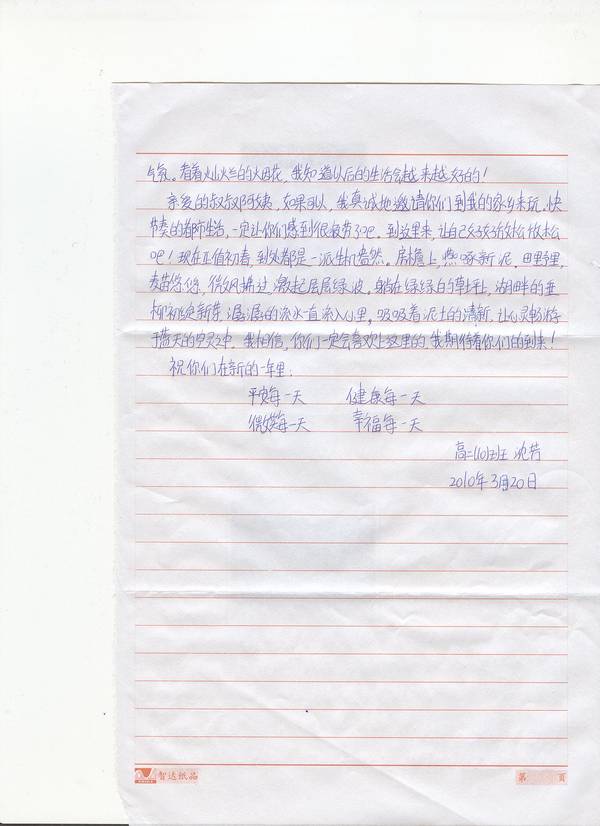 气氛。看着灿烂的烟花,我知道以后的生活会越来越好的!
亲爱的叔叔阿姨,如果可以,我真诚地邀请你们到我的家乡来玩。快
节奏的都市生活,一定让你们感到很疲劳了吧。到这里来,让自己好好放松放松
吧!现在正值初春,到处都是一派生机盎然。房檐上,燕啄新泥。田野里,
麦苗悠悠,微风拂过,激起层层绿波。躺在绿绿的草地上,湖畔的垂
柳初绽新芽,潺潺的流水一直流入心里。吸吸着泥土的清新,让心灵畅游
于蓝天的空灵之中。我相信,你们一定会喜欢上这里的,我期待着你们的到来!
祝你们在新的一年里:
平安每一天 健康每一天
微笑每一天 幸福每一天
高二(10)班 沈芳
2010年3月20日
智达纸品
第 页